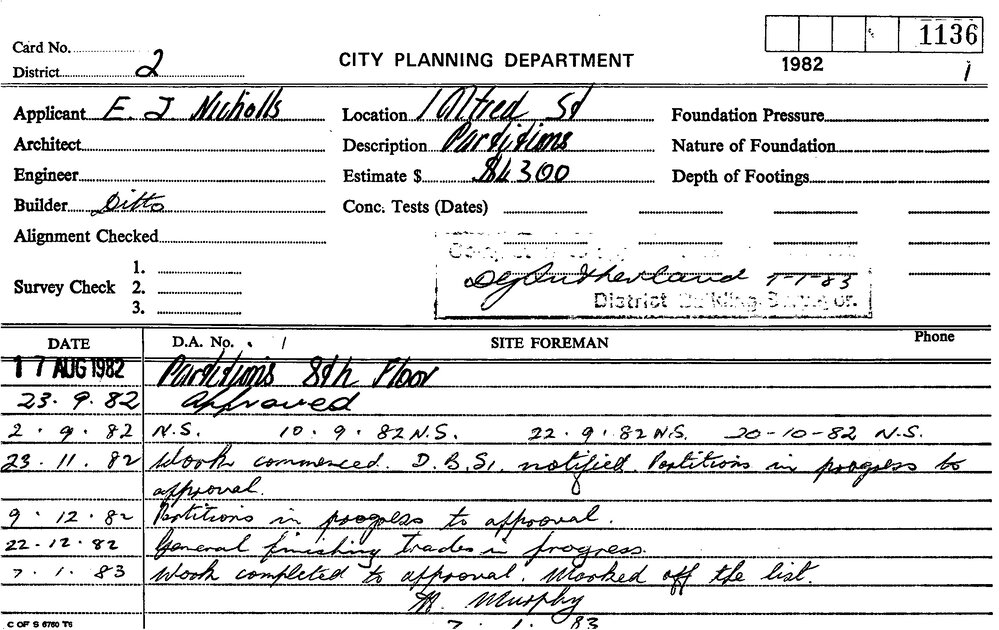 1136
Card No.
District 2
CITY PLANNING DEPARTMENT
1982
1
Applicant E. J. Nicholls
Location 1 Alfred St
Foundation Pressure
Architect
Description Partitions
Nature of Foundation
Engineer
Estimate $ $4300
Depth of Footings
Builder Ditto
Conc. Tests (Dates)
Alignment Checked
Survey Check 1.
2.
3.
DG Sutherland 7-1-83
District Building Surveyor.
DATE
D.A. No.
SITE FOREMAN
Phone
17 AUG 1982 Partitions 8th Floor
23.9.82 Approved
2.9.82 N.S. 10.9.82 N.S. 22.9.82 N.S. 20-10-82 N.S.
23.11.82 Work commenced. D.B.S. notified. Partitions in progress to
approval.
9.12.82 Partitions in progress to approval.
22.12.82 General finishing trades in progress.
7.1.83 Work completed to approval. Marked off the list.
Murphy
7.1.83
C OF S 6760 T6